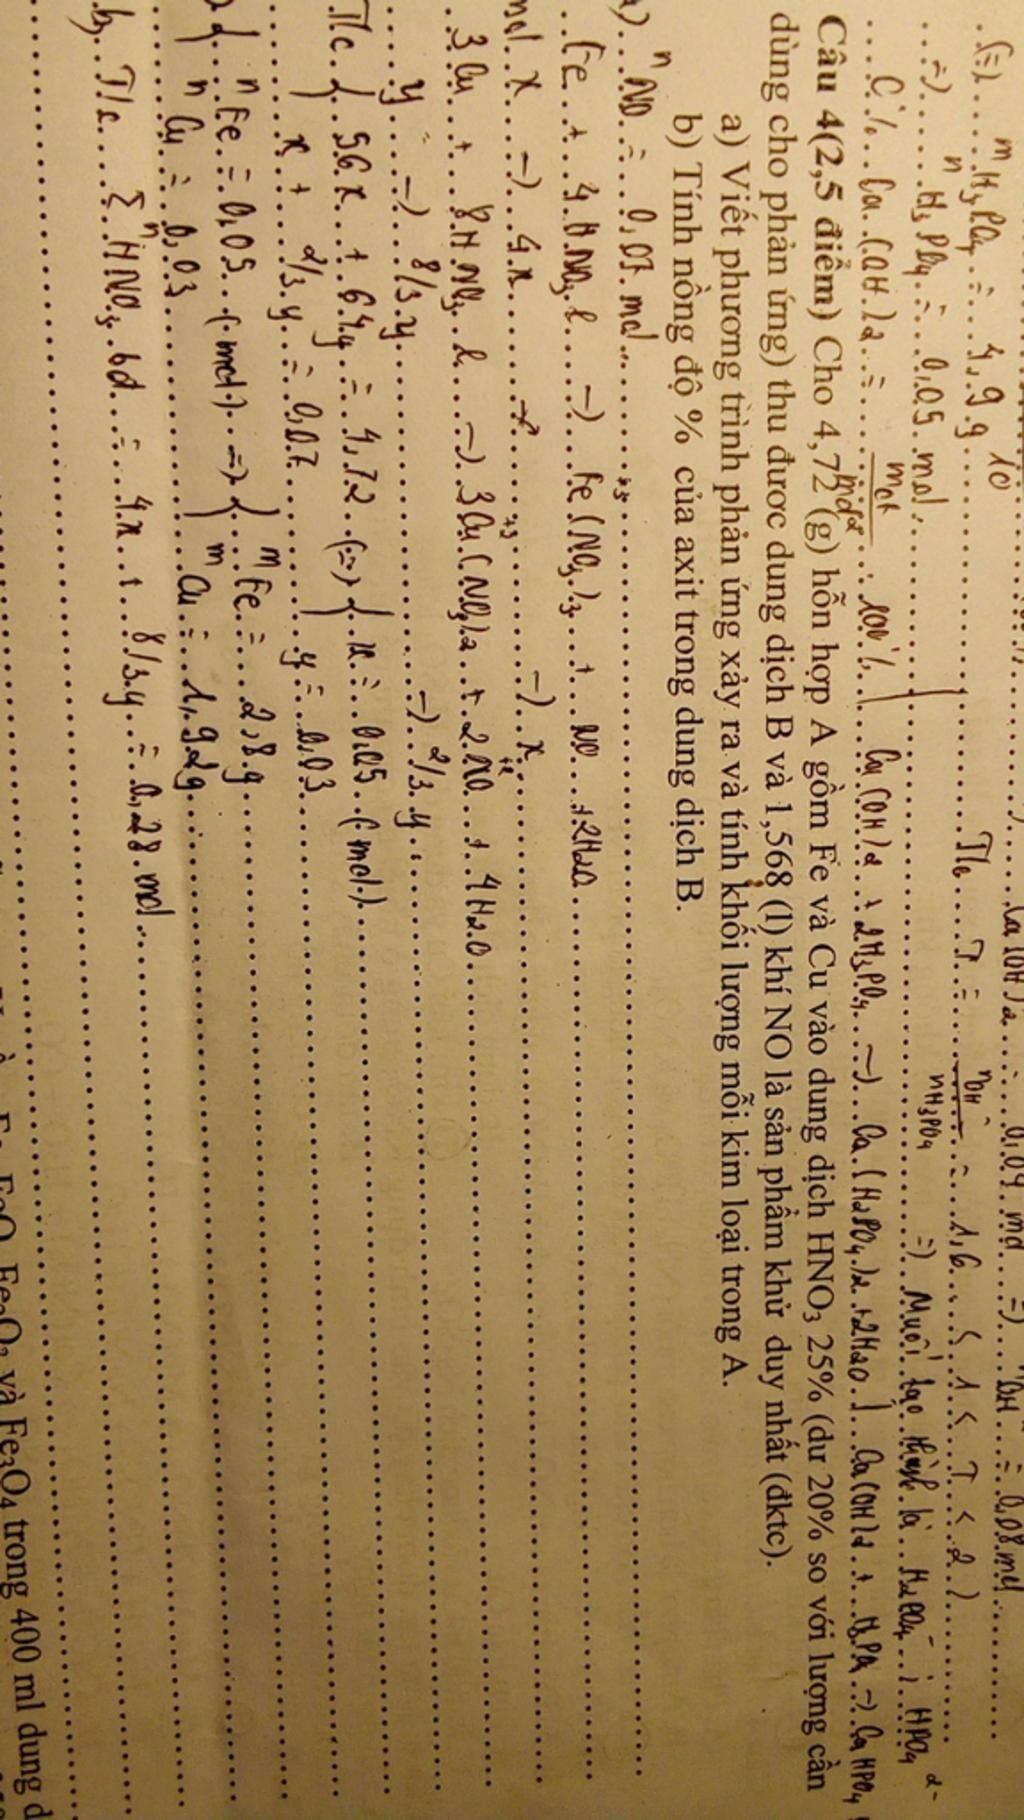 (=) m H3PO4 = 4,9 g
=) n H3PO4 = 0,05 mol. T/c T = nOH- / nH3PO4 = 1,6 ( 1 < T < 2 )
C% Ca(OH)2 = mct / mdd . 100% =) Muối tạo thành là H2PO4- ; HPO4 2-
Ca(OH)2 + 2H3PO4 -) Ca(H2PO4)2 + 2H2O Ca(OH)2 + H3PO4 -) CaHPO4
Câu 4(2,5 điểm) Cho 4,72 (g) hỗn hợp A gồm Fe và Cu vào dung dịch HNO3 25% (dư 20% so với lượng cần
dùng cho phản ứng) thu được dung dịch B và 1,568 (l) khí NO là sản phẩm khử duy nhất (đktc).
a) Viết phương trình phản ứng xảy ra và tính khối lượng mỗi kim loại trong A.
b) Tính nồng độ % của axit trong dung dịch B.
a) n NO = 0,07 mol
Fe + 4HNO3 l -) Fe(NO3)3 + NO + 2H2O
mol x -) 4x -) x
3Cu + 8HNO3 l -) 3Cu(NO3)2 + 2NO + 4H2O
y -) 8/3y -) 2/3y
T/c { 56x + 64y = 4,72 (=) { x = 0,05 (mol)
x + 2/3y = 0,07 y = 0,03
{ n Fe = 0,05 (mol) =) { m Fe = 2,8 g
n Cu = 0,03 m Cu = 1,92g
b, T/c Σ n HNO3 bđ = 4x + 8/3y = 0,28 mol
và Fe3O4 trong 400 ml dung d